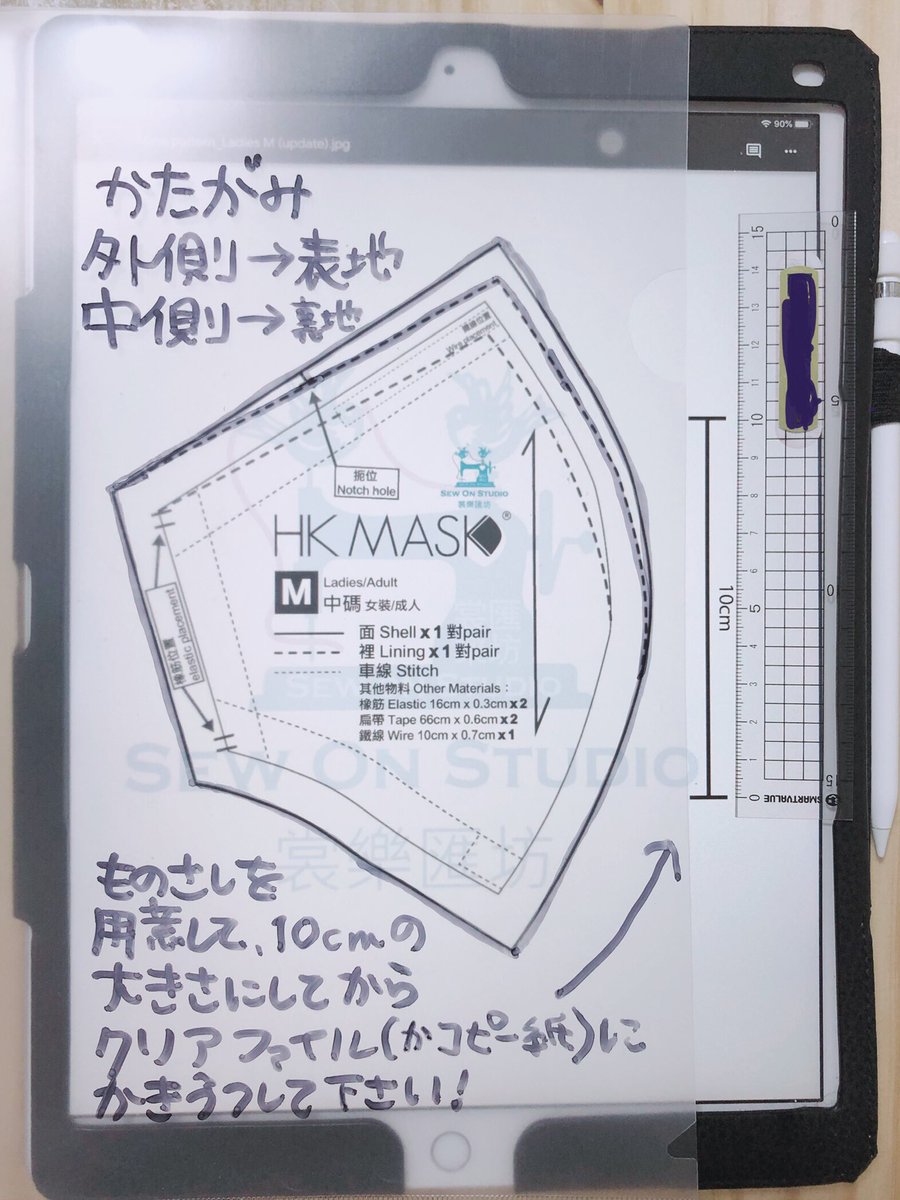 Pattern_Ladies M (update).jpg
90%
かたがみ
外側→表地
中側→裏地
鐵線位置
Wire placement
扼位
Notch hole
SEW ON STUDIO
裳樂匯坊
HK MASK®
M Ladies/Adult
中碼 女裝/成人
面 Shell x 1 對pair
裡 Lining x 1 對pair
車線 Stitch
其他物料 Other Materials：
橡筋 Elastic 16cm x 0.3cm x2
扁帶 Tape 66cm x 0.6cm x2
鐵線 Wire 10cm x 0.7cm x1
橡筋位置
elastic placement
SEW ON STUDIO
SEW ON STUDIO
裳樂匯坊
10cm
15
14
13
12
11
10
9
8
7
6
5
4
3
2
1
0
0
5
0
15
SMARTVALUE
ものさしを
用意して、10cmの
大きさにしてから
クリアファイル(かコピー紙)に
かきうつして下さい!